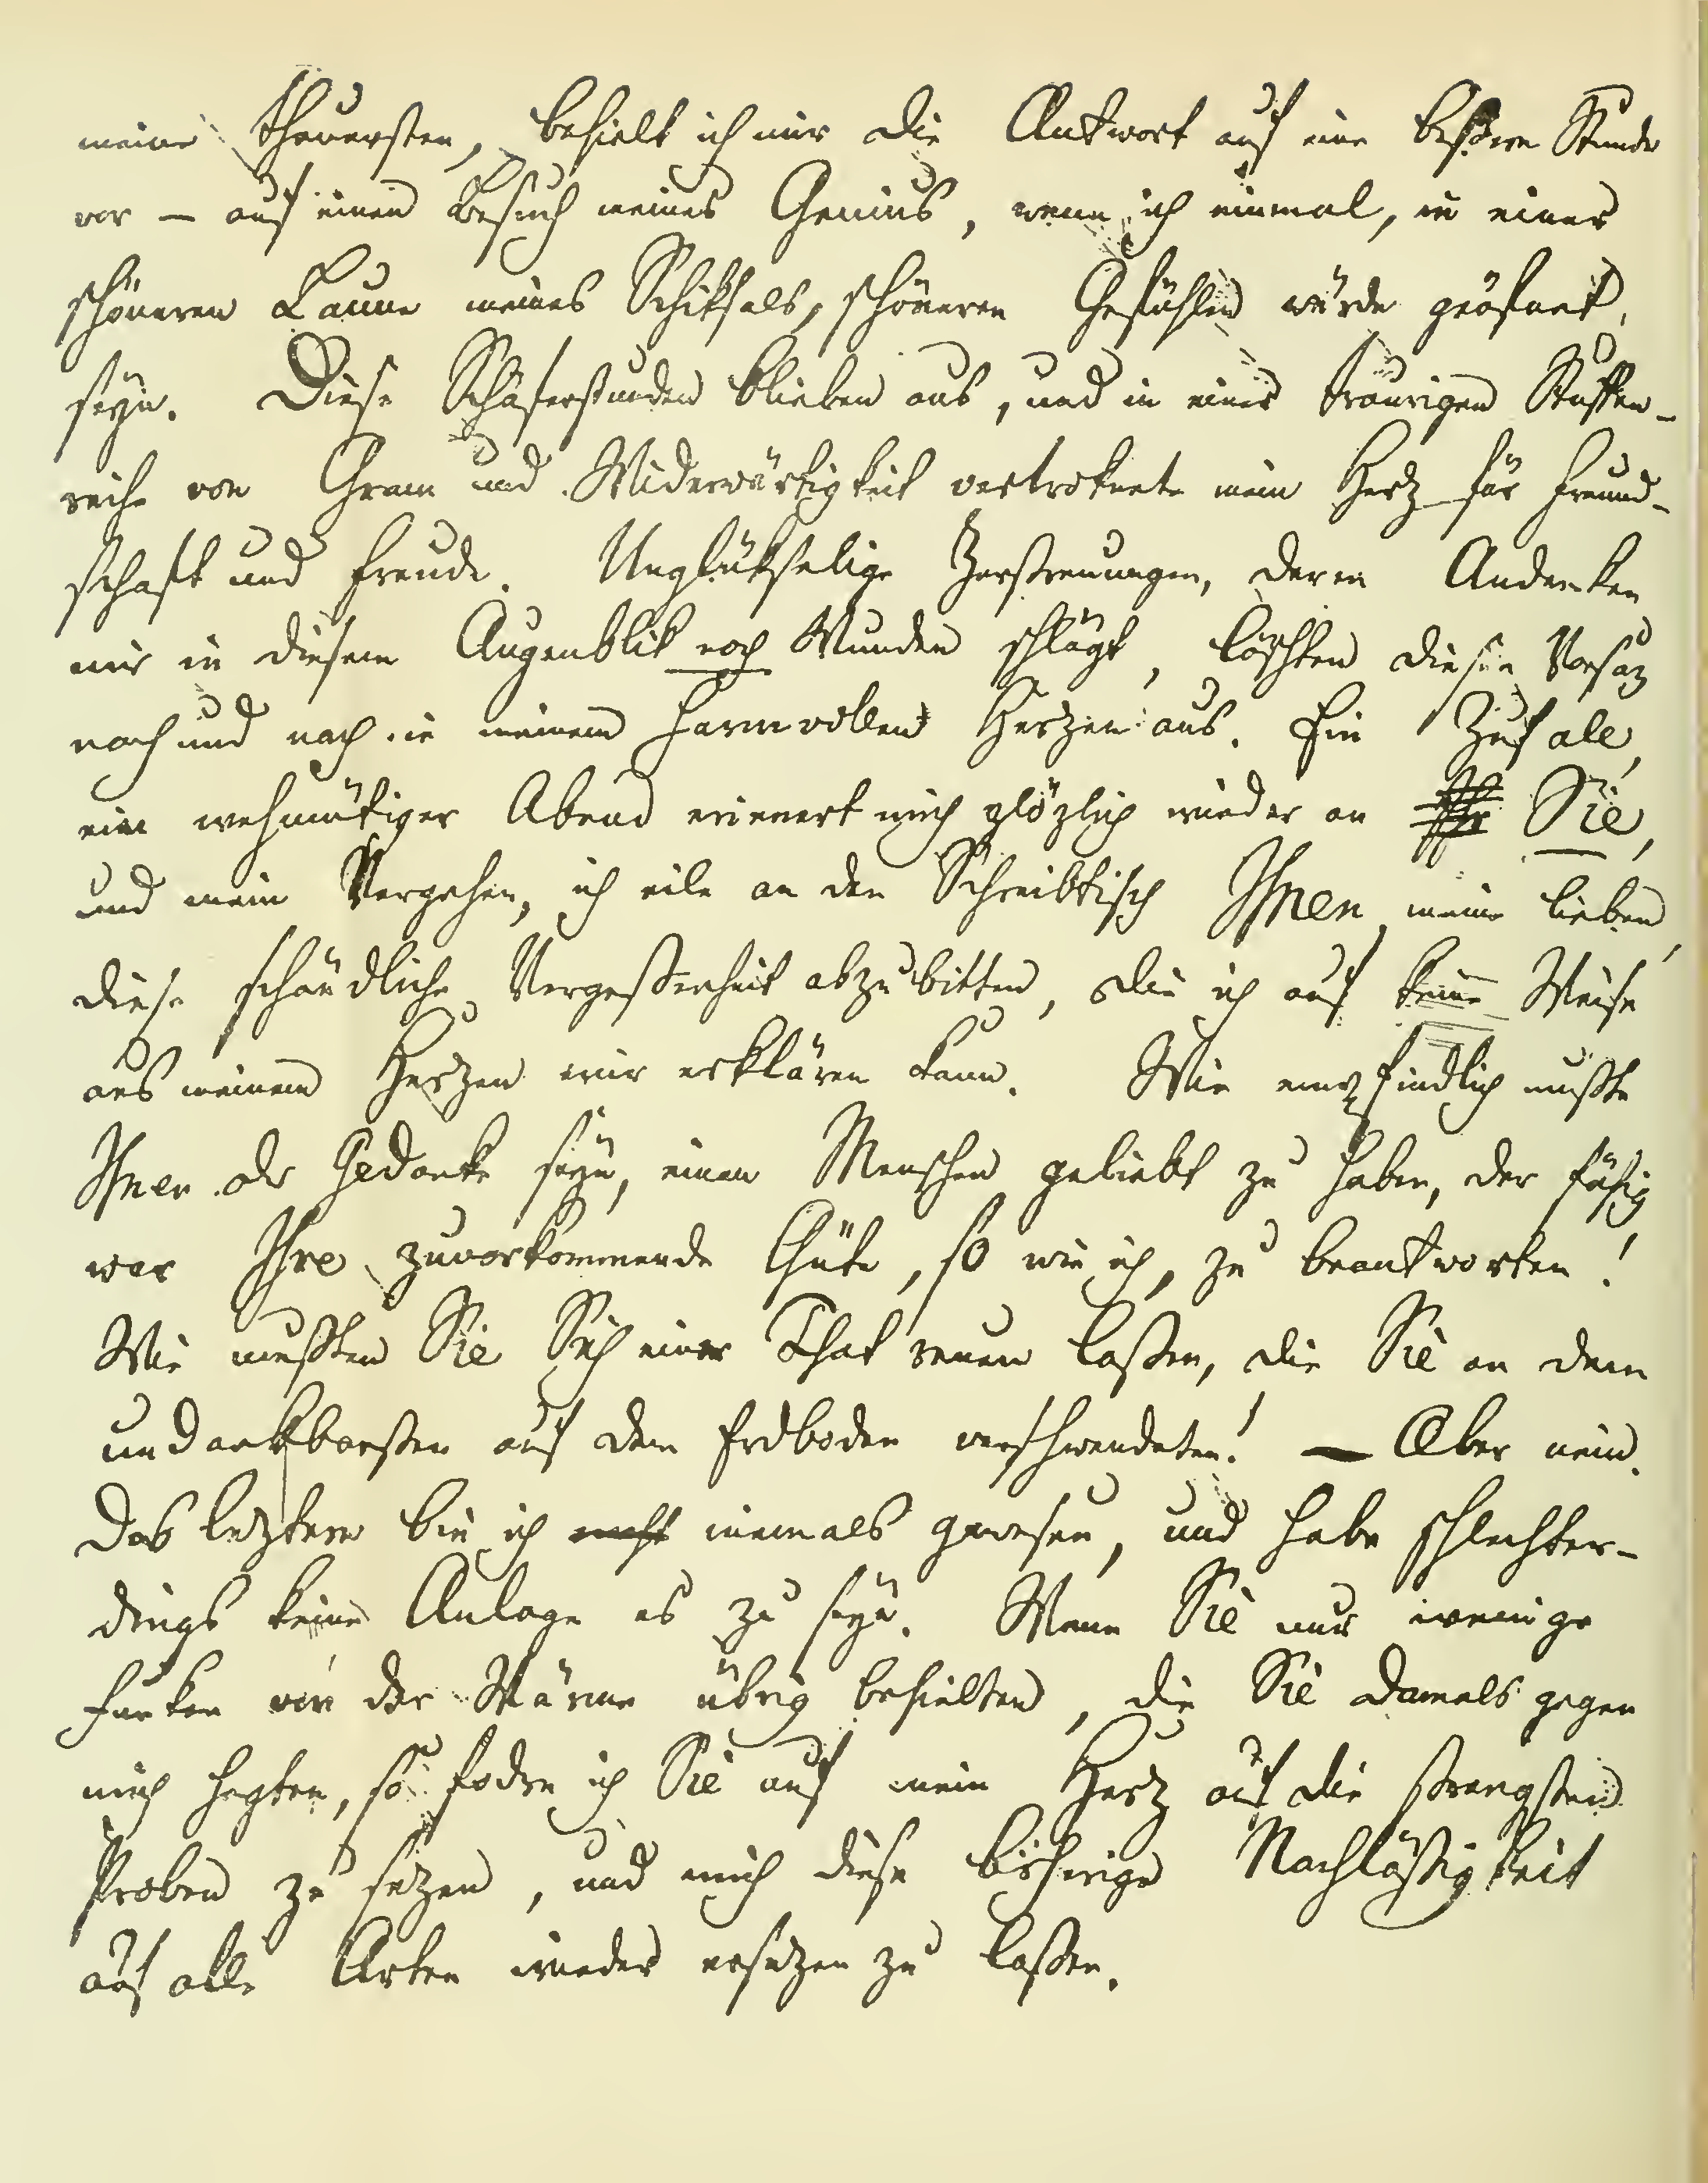 meine Theuersten, behielt ich mir die Antwort auf eine beßere Stunde
vor — auf einen Besuch meines Genius, wenn ich einmal, in einer
schöneren Laune meines Schiksals, schöneren Gefühlen würde geöfnet
seyn. Diese Schäferstunden blieben aus, und in einer traurigen Stuffen-
reihe von Gram und Widerwärtigkeit vertroknete mein Herz für Freund-
schaft und Freude. Unglükselige Zerstreuungen, deren Andenken
mir in diesem Augenblik noch Wunden schlägt, löschten diesen Vorsaz
nach und nach in meinem harmvollen Herzen aus. Ein Zufall,
ein wehmütiger Abend erinnert mich plözlich wieder an Sie,
und mein Vergehen, ich eile an den Schreibtisch Ihnen, meine lieben,
diese schändliche Vergeßenheit abzubitten, die ich auf keine Weise
aus meinem Herzen mir erklären kann. Wie empfindlich mußte
Ihnen der Gedanke seyn, einen Menschen geliebt zu haben, der fähig
war Ihre zuvorkommende Güte, so wie ich, zu beantworten!
Wie mußten Sie Sich einer That reuen laßen, die Sie an dem
undankbarsten auf dem Erdboden verschwendeten! — Aber nein.
Das leztere bin ich nicht niemals gewesen, und habe schlechter-
dings keine Anlage es zu seyn. Wenn Sie nur wenige
Funken von der Wärme übrig behielten, die Sie damals gegen
mich hegten, so fodre ich Sie auf mein Herz auf die strengsten
Proben zu sezen, und mich diese bisherige Nachläßigkeit
auf alle Arten wieder ersezen zu laßen.